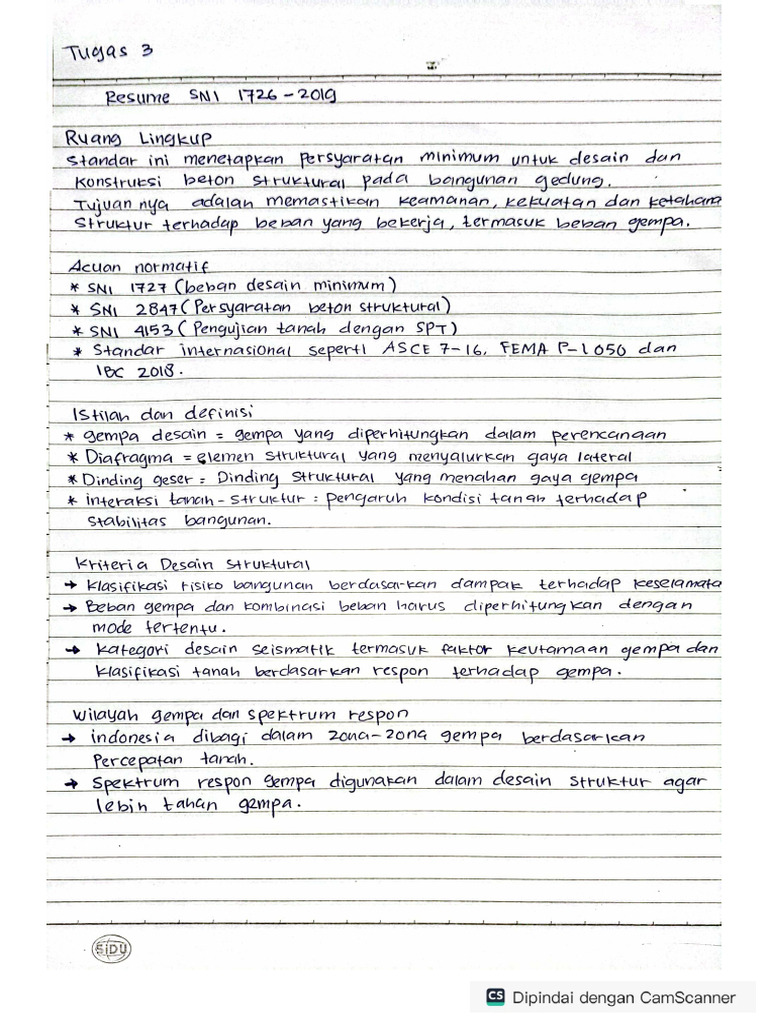 Tugas 3
Resume SNI 1726-2019
Ruang Lingkup
Standar ini menetapkan Persyaratan minimum untuk desain dan
Konstruksi beton struktural pada bangunan gedung.
Tujuan nya adalah memastikan keamanan, kekuatan dan ketahana
Struktur terhadap beban yang bekerja, termasuk beban gempa.
Acuan normatif
* SNI 1727 (beban desain minimum)
* SNI 2847 (Persyaratan beton struktural)
* SNI 4153 (Pengujian tanah dengan SPT)
* Standar internasional seperti ASCE 7-16, FEMA P-1050 dan
IBC 2018.
Istilah dan definisi
* gempa desain = gempa yang diperhitungkan dalam perencanaan
* Diafragma = elemen struktural yang menyalurkan gaya lateral
* Dinding geser = Dinding struktural yang menahan gaya gempa
* interaksi tanah-struktur = pengaruh kondisi tanah terhadap
stabilitas bangunan.
Kriteria Desain struktural
→ Klasifikasi risiko bangunan berdasarkan dampak terhadap keselamata
→ Beban gempa dan kombinasi beban harus diperhitungkan dengan
mode tertentu.
→ Kategori desain seismatik termasuk faktor keutamaan gempa dan
klasifikasi tanah berdasarkan respon terhadap gempa.
Wilayah gempa dan spektrum respon
→ indonesia dibagi dalam zona-zona gempa berdasarkan
Percepatan tanah.
→ Spektrum respon gempa digunakan dalam desain struktur agar
lebih tahan gempa.
SiDU
CS Dipindai dengan CamScanner